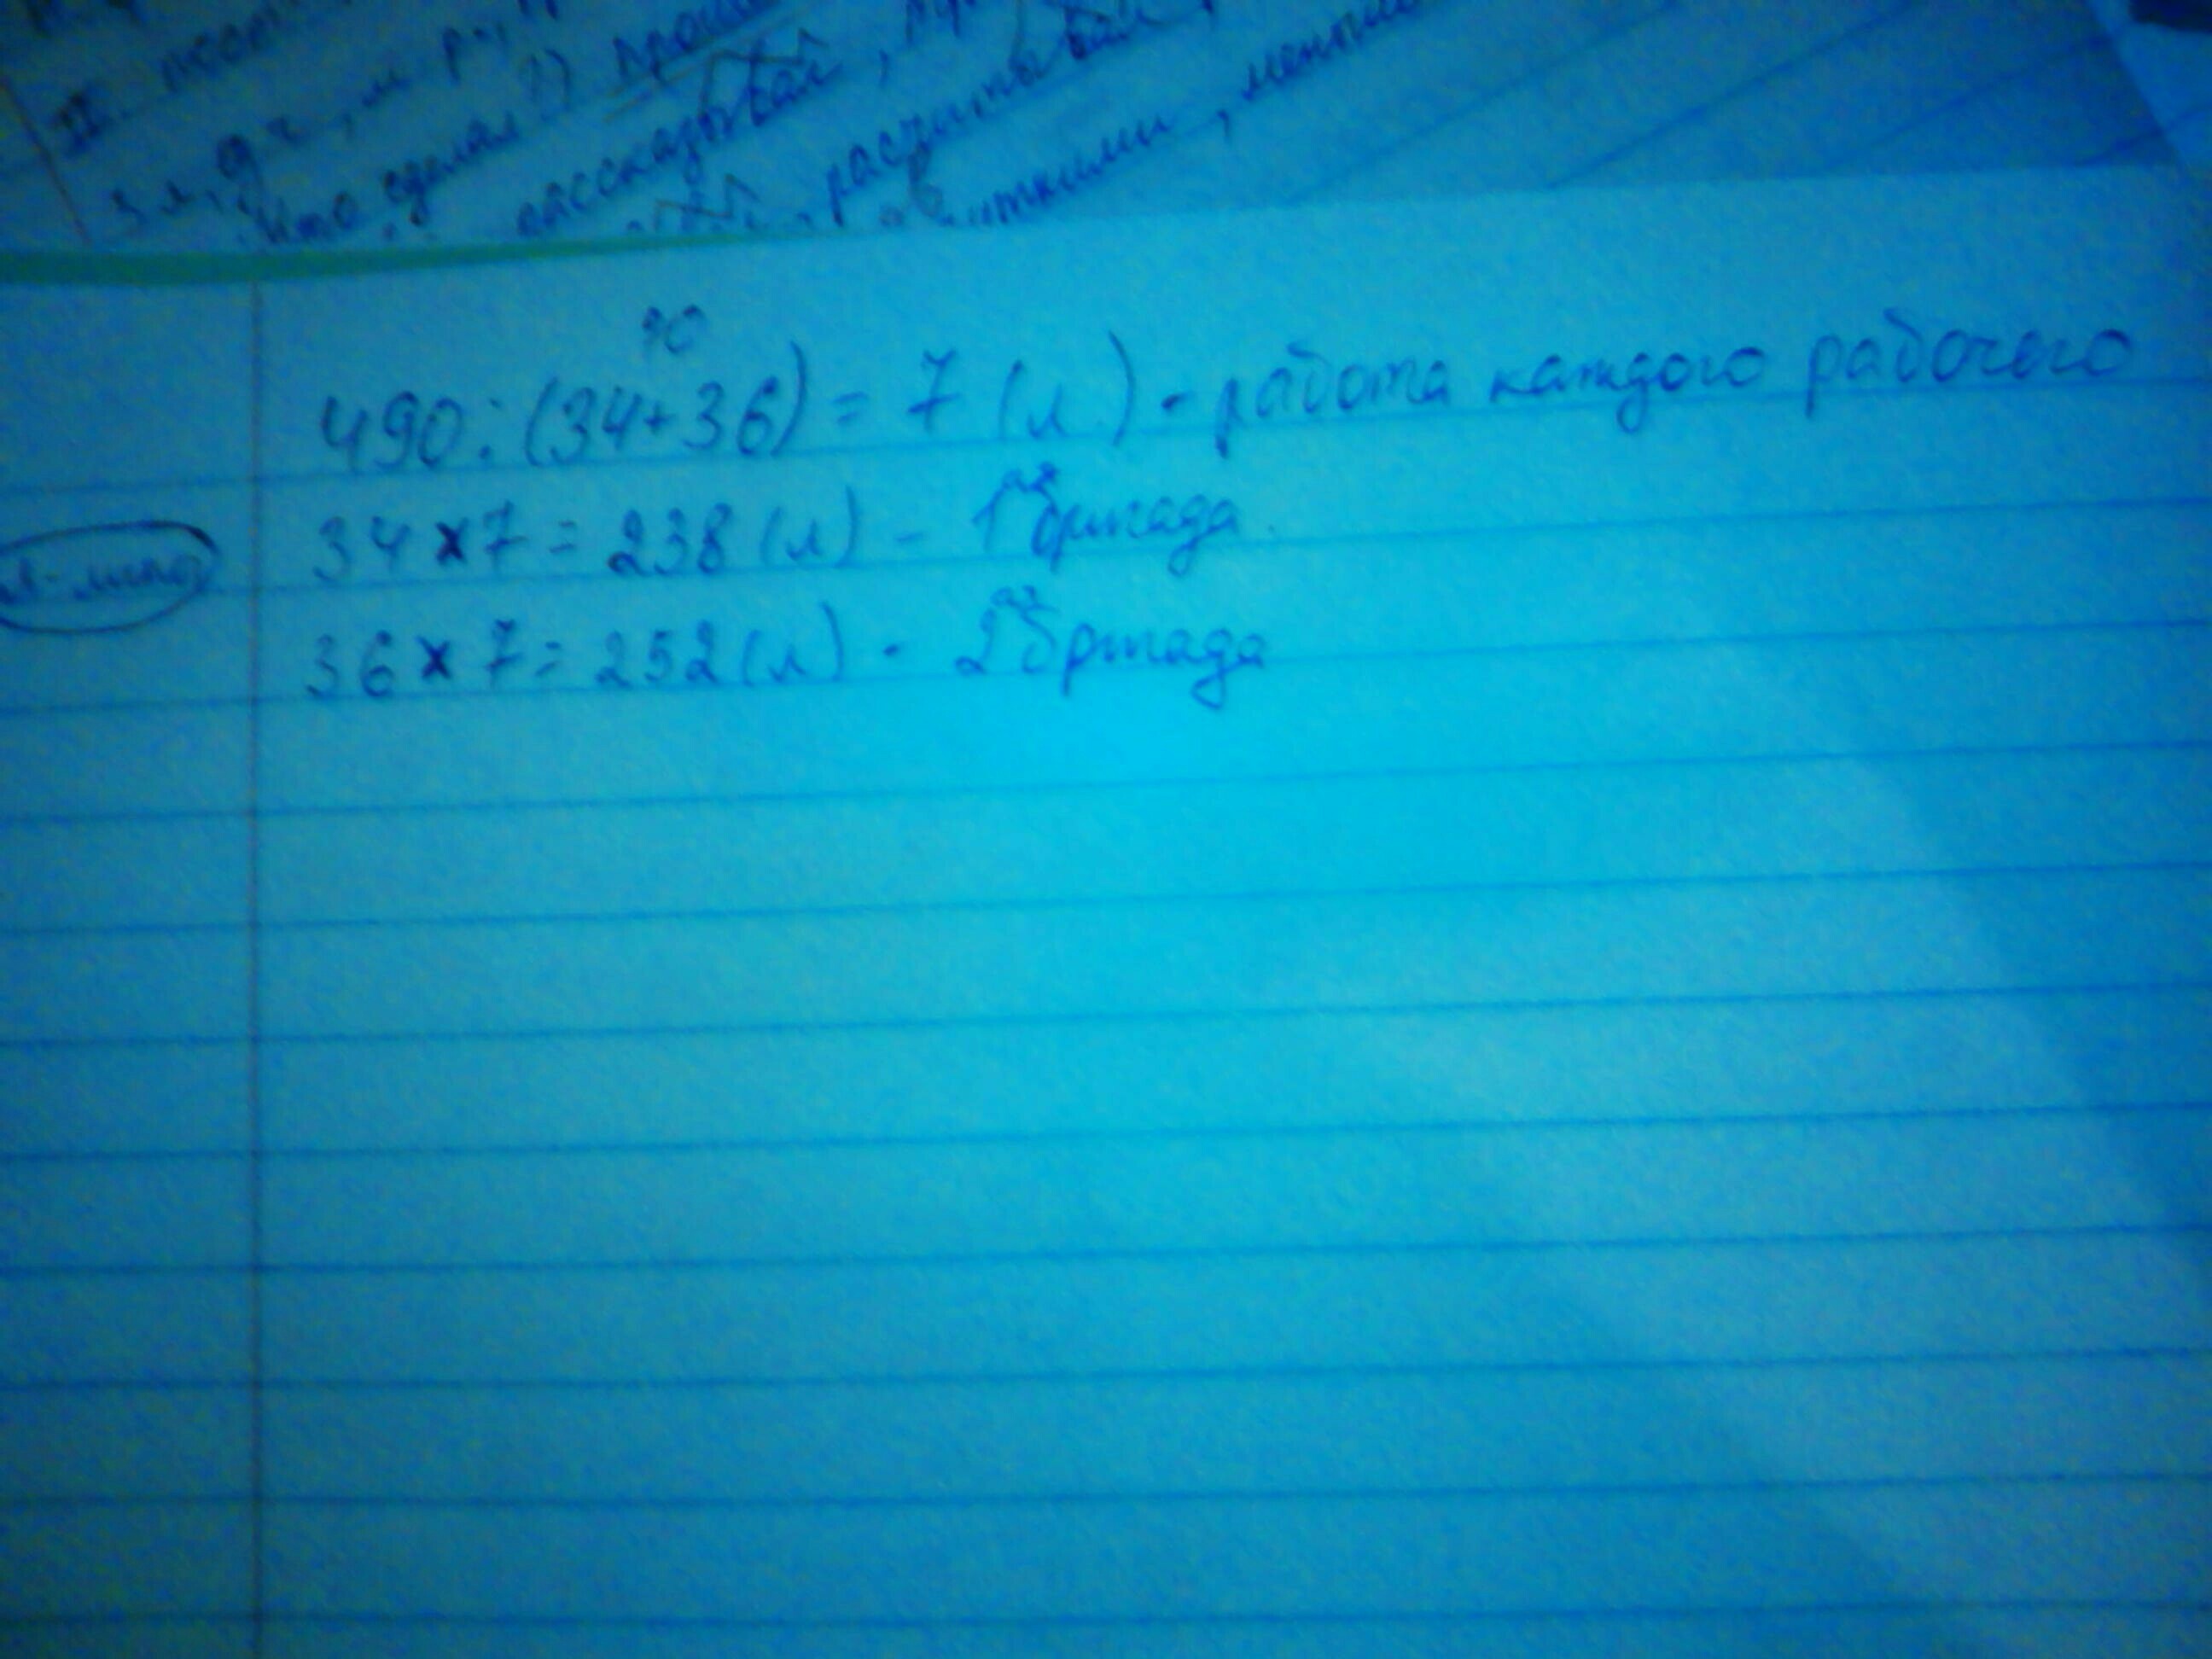 II
что сделал?)
рассказывай,
расчитывай,
70
490:(34+36) = 7 (л.) - работа каждого рабочего
34 x 7 = 238 (л) - 1ая бригада.
36 x 7 = 252 (л) - 2ая бригада